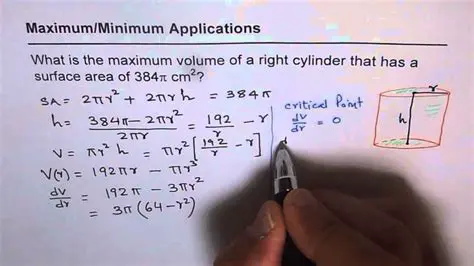 Maximum/Minimum Applications
What is the maximum volume of a right cylinder that has a
surface area of 384π cm²?
SA = 2πr² + 2πrh = 384π
h = (384π - 2πr²)/(2πr) = 192/r - r
V = πr²h = πr²[192/r - r]
V(r) = 192πr - πr³
dV/dr = 192π - 3πr²
= 3π(64 - r²)
critical Point
dV/dr = 0
r
h